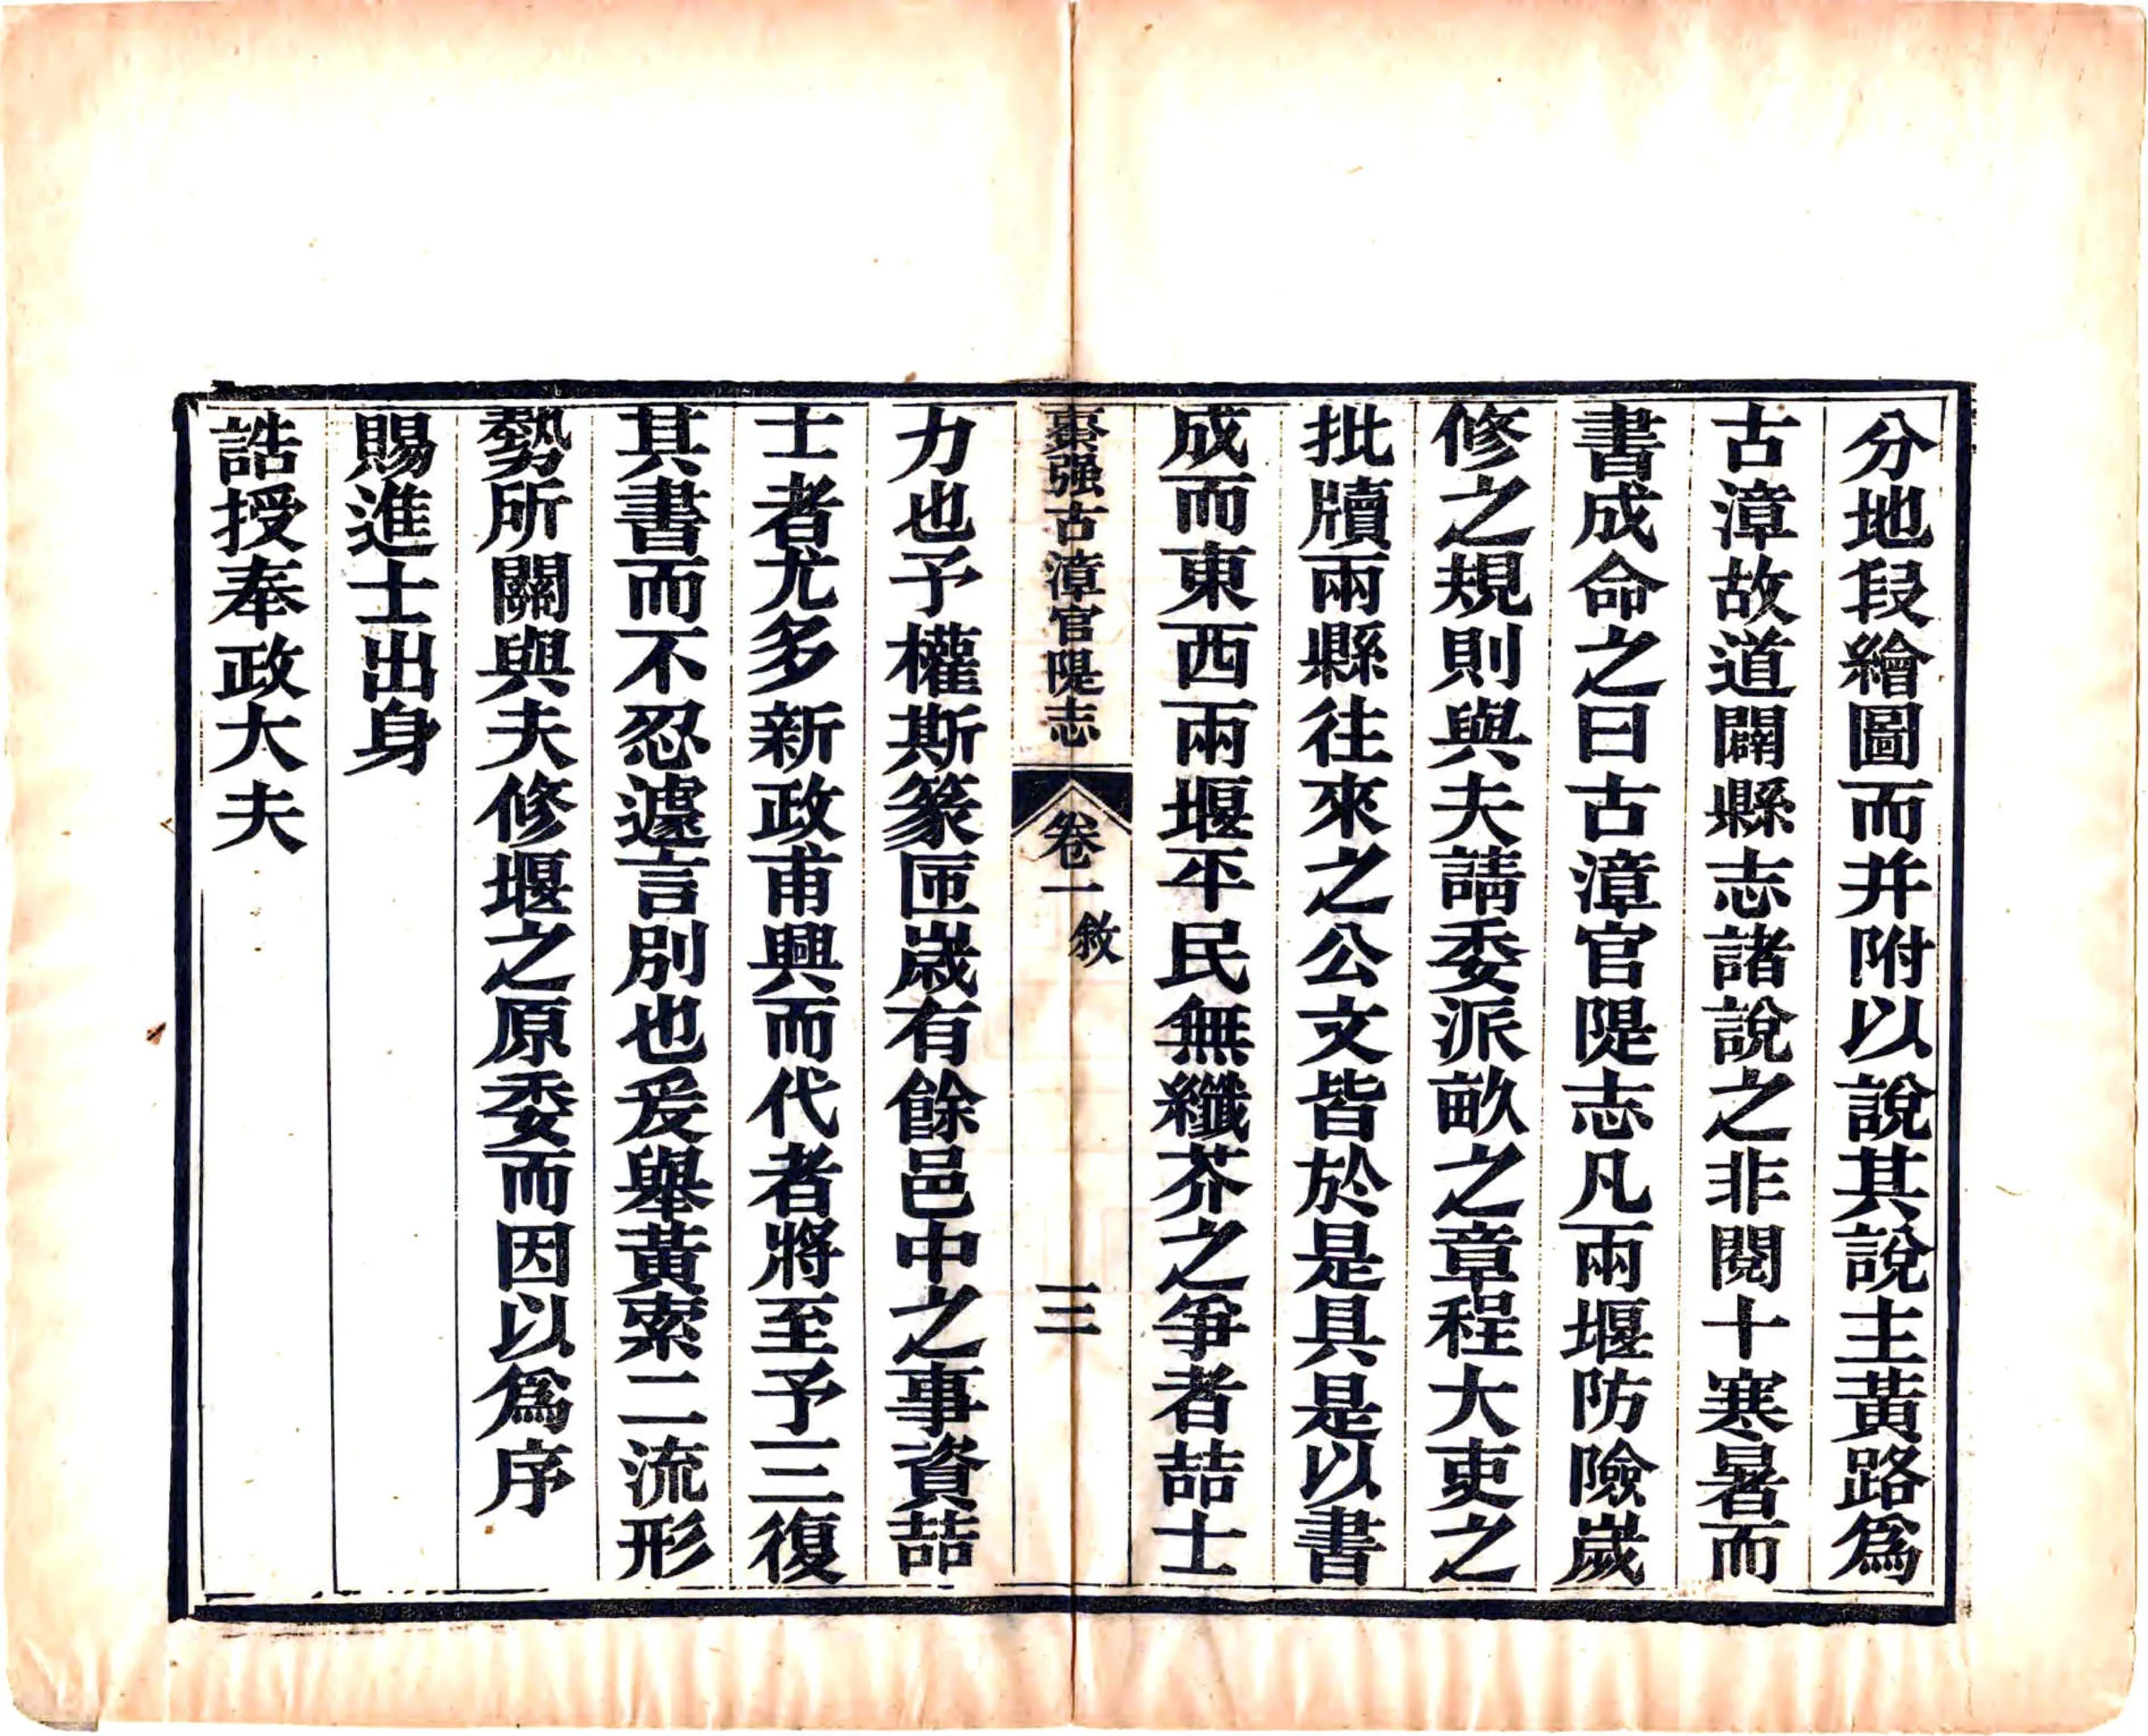 分地段繪圖而并附以說其說主黃路爲
古漳故道闢縣志諸說之非閱十寒暑而
書成命之曰古漳官隄志凡兩堰防險歲
修之規則與夫請委派畝之章程大吏之
批牘兩縣往來之公文皆於是具是以書
成而東西兩堰平民無纖芥之爭者喆士
棗强古漳官隄志 卷一 敘 三
力也予權斯篆匝嵗有餘邑中之事資喆
士者尤多新政甫興而代者將至予三復
其書而不忍遽言別也爰舉黃索二流形
勢所關與夫修堰之原委而因以爲序
賜進士出身
誥授奉政大夫